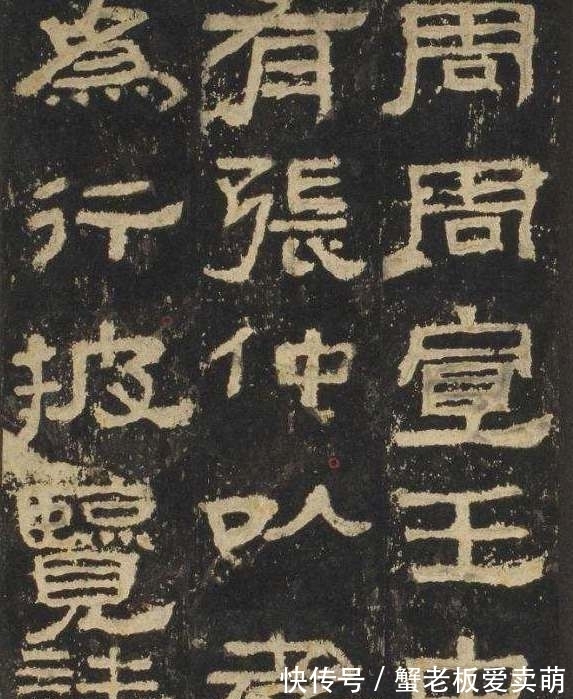 周周宣王
有張仲以
為行披覽
快传号 / 蟹老板爱卖萌